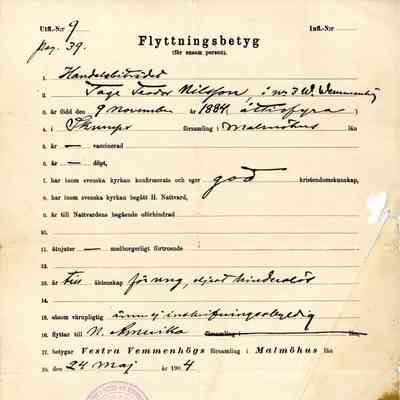 Utfl.-N:r 9 Infl.-N:r
pag. 39.
Flyttningsbetyg
(för ensam person).
1. Handelsbiträdet
2. Tage Teodor Nilsson, i nr 3 V. Vemmenhög
3. är född den 9 november år 1884 (åttiofyra)
4. i Skurups församling i Malmöhus län
5. är — vaccinerad
6. är — döpt,
7. har inom svenska kyrkan konfirmerats och eger god kristendomskunskap,
8. har inom svenska kyrkan begått H. Nattvard,
9. är till Nattvardens begående oförhindrad
10.
11. åtnjuter — medborgerligt förtroende
12.
13. är till äktenskap för ung, eljest hinderslös
14.
15. såsom värnpligtig ännu ej inskrifningsskyldig
16. flyttar till N. Amerika församling i län,
17. betygar Vestra Vemmenhögs församling i Malmöhus län
18. den 24 Maj år 1904